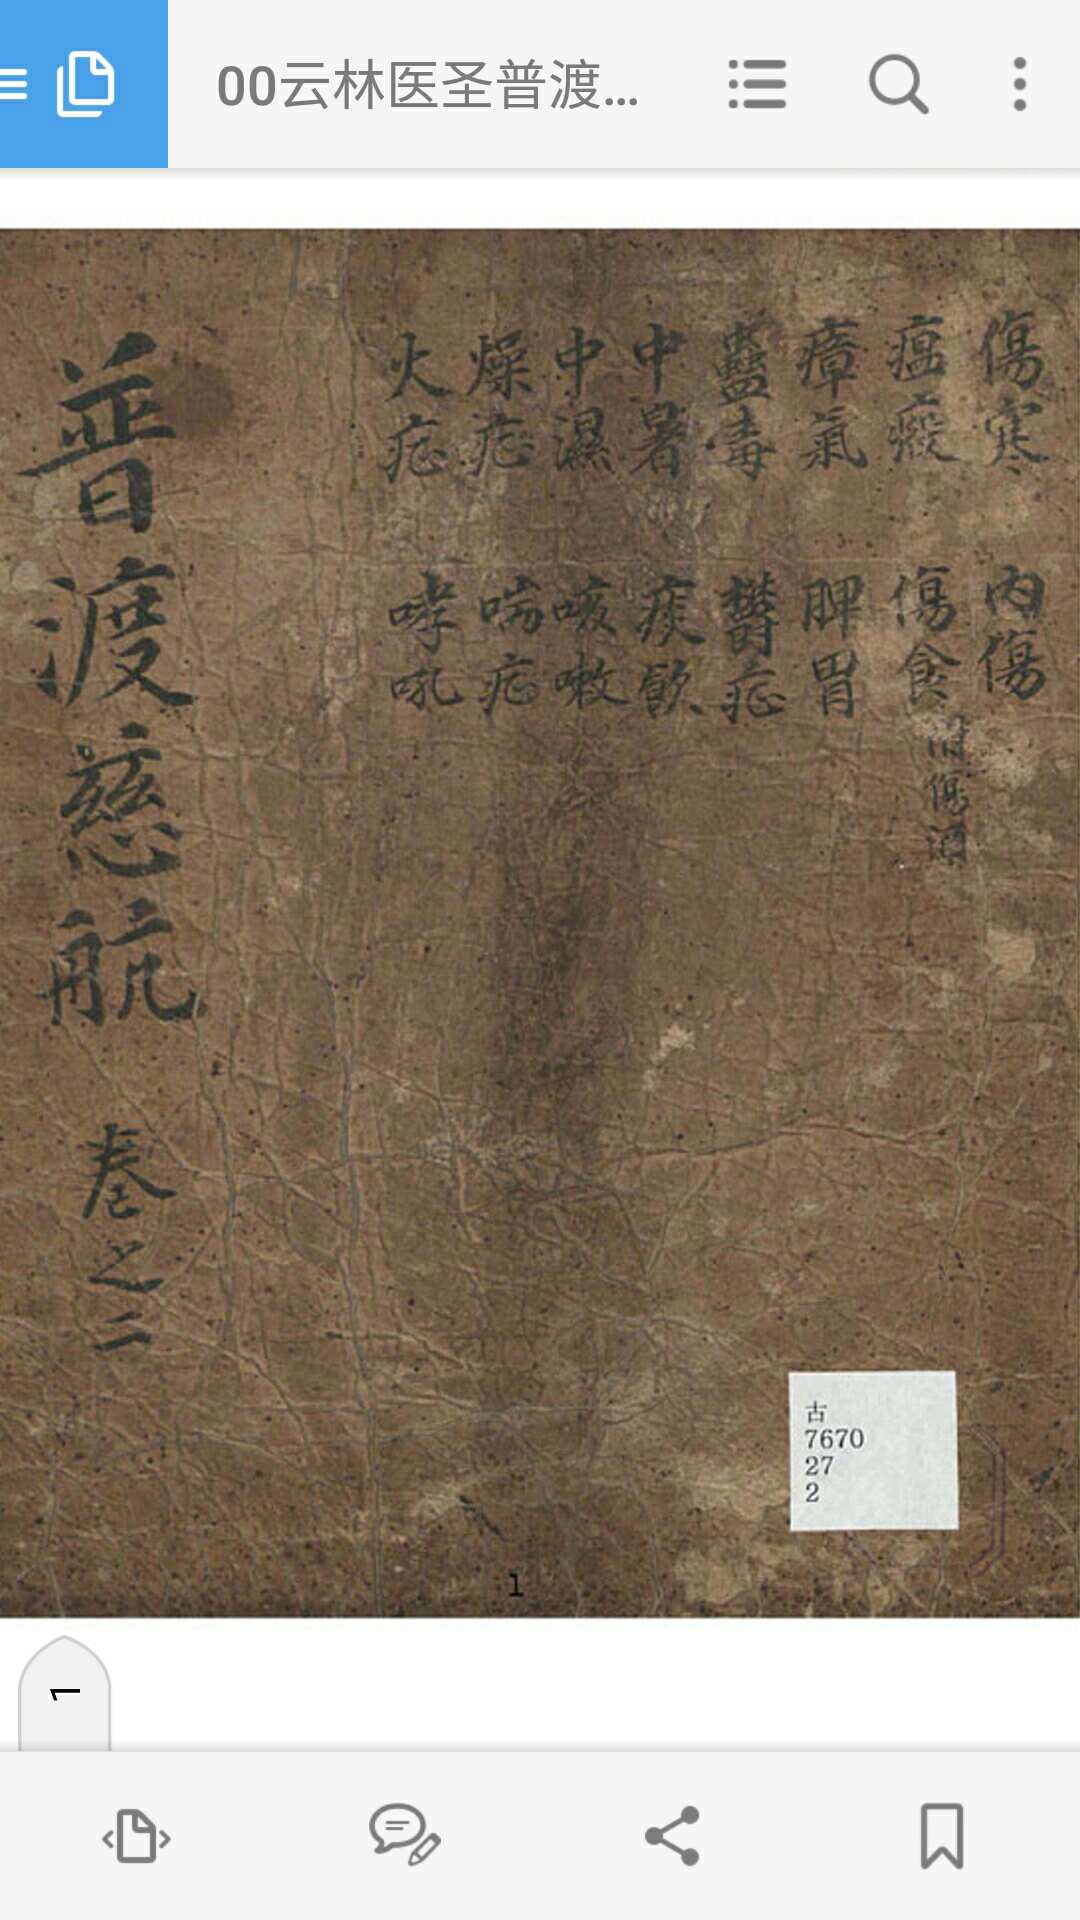 00云林医圣普渡...
傷寒
瘟疫
瘴氣
蠱毒
中暑
中濕
燥症
火症
內傷
傷食附傷酒
脾胃
鬱症
痰飲
咳嗽
喘症
哮吼
普渡慈航 卷之二
古
7670
27
2
1
1